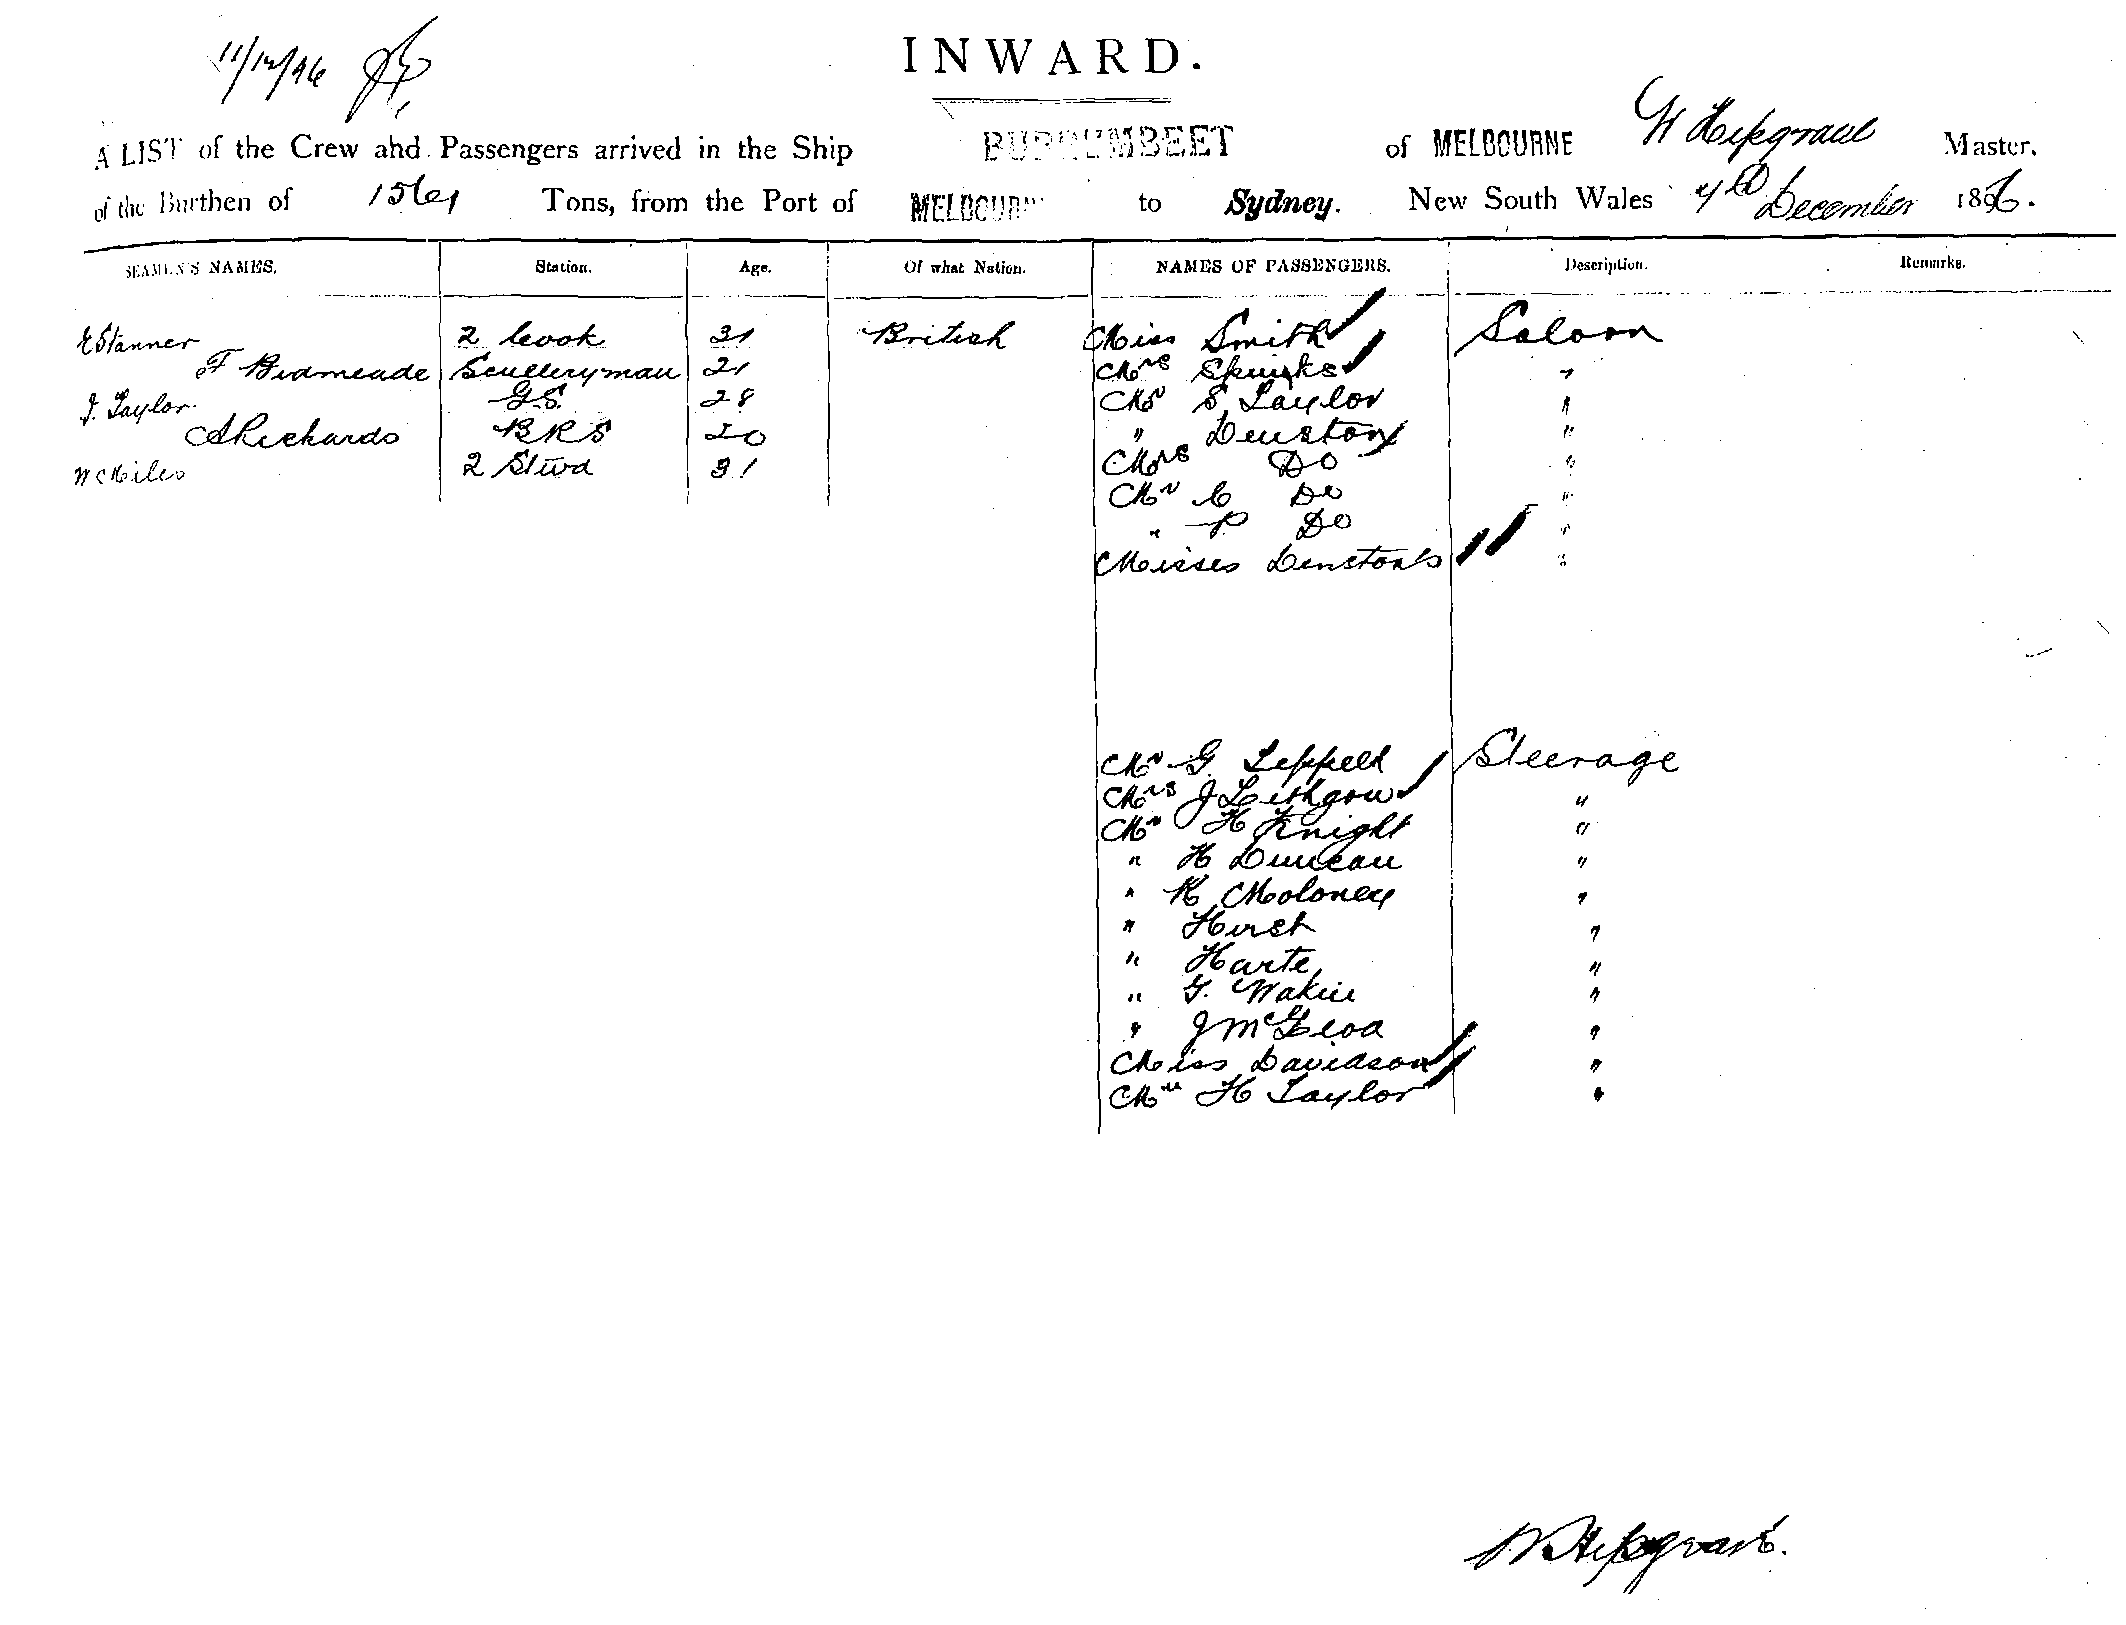 11/12/96
INWARD.
A LIST of the Crew and Passengers arrived in the Ship BURRUMBEET of MELBOURNE W Hipgrave Master.
of the Burthen of Tons, from the Port of MELBOURNE to Sydney. New South Wales December 1896.
SEAMEN'S NAMES. Station. Age. Of what Nation. NAMES OF PASSENGERS. Description. Remarks.
E Stanner 2 Cook 31 British Miss Smith Saloon
F Bidmeade Sculleryman 21 Mrs Spinks "
J. Taylor G.S. 28 Mr S Taylor "
A Richards BRS 20 " Denston "
W Miles 2 Stwd 31 Mrs Do "
Mr C Do "
" P Do "
Misses Denstons "
Mr G. Leppell Steerage
Mrs J Lithgow "
Mr H Knight "
" H Duncan "
" K Moloney "
" Hirst "
" Harte "
" G. "
" J McLeod "
Miss Davidson "
Mr H Taylor "
W Hipgrave.